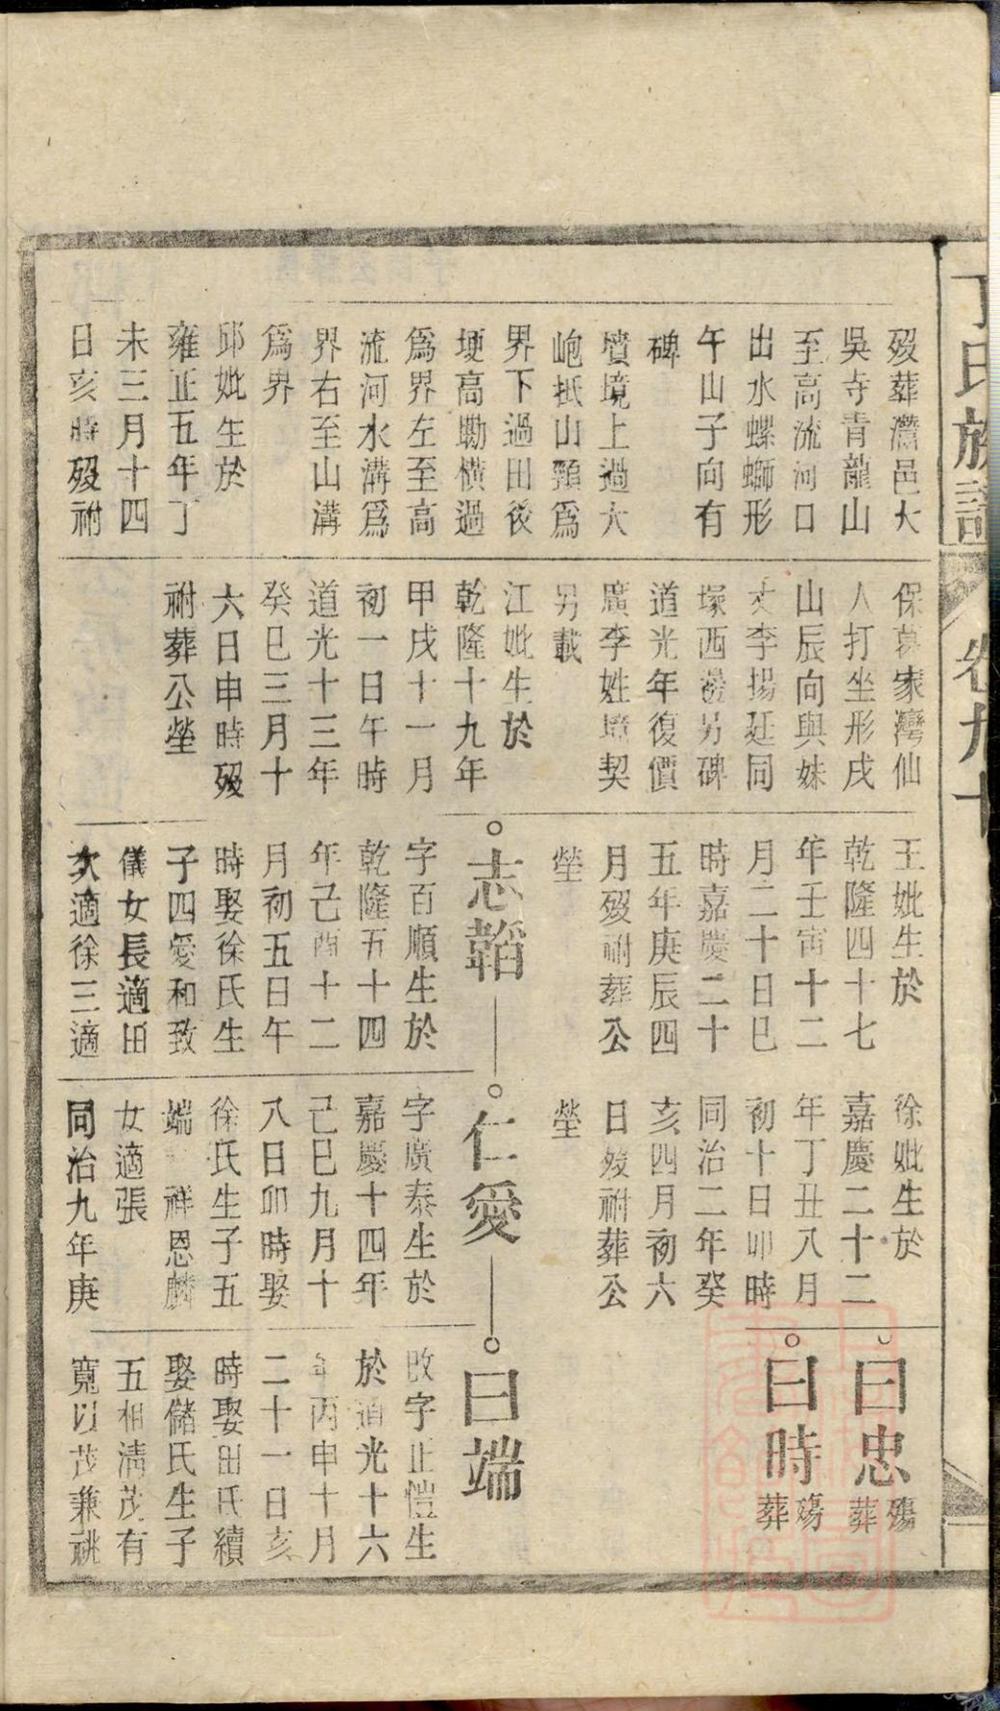 丁氏族譜
卷九十
歿葬灊邑大
吳寺青龍山
至高流河口
出水螺螄形
午山子向有
碑
墳境上過大
峗抵山頸爲
界下過田後
埂高墈橫過
爲界左至高
流河水溝爲
界右至山溝
爲界
邱妣生於
雍正五年丁
未三月十四
日亥時歿祔
保暮家灣仙
人打坐形戌
山辰向與妹
丈李揚廷同
塚西邊另碑
道光年復價
廣李姓墳契
另載
江妣生於
乾隆十九年
甲戌十一月
初一日午時
道光十三年
癸巳三月十
六日申時歿
祔葬公塋
王妣生於
乾隆四十七
年壬寅十二
月二十日巳
時嘉慶二十
五年庚辰四
月歿祔葬公
塋
志韜
字百順生於
乾隆五十四
年己酉十二
月初五日午
時娶徐氏生
子四愛和致
儀女長適田
次適徐三適
徐妣生於
嘉慶二十二
年丁丑八月
初十日卯時
同治二年癸
亥四月初六
日歿祔葬公
塋
仁愛
字廣泰生於
嘉慶十四年
己巳九月十
八日卯時娶
徐氏生子五
端 祥恩麟
女適張
同治九年庚
曰忠
殤葬
曰時
殤葬
曰端
改字正愷生
於道光十六
年丙申十月
二十一日亥
時娶田氏續
娶儲氏生子
五相清茂有
寬以茂兼祧